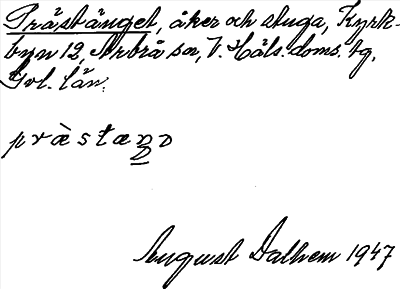 Prästänget, åker och stuga, Kyrk-
byn 12, Arbrå sn, V. Häls. doms. tg,
Gvl. län.
August Dalhem 1947